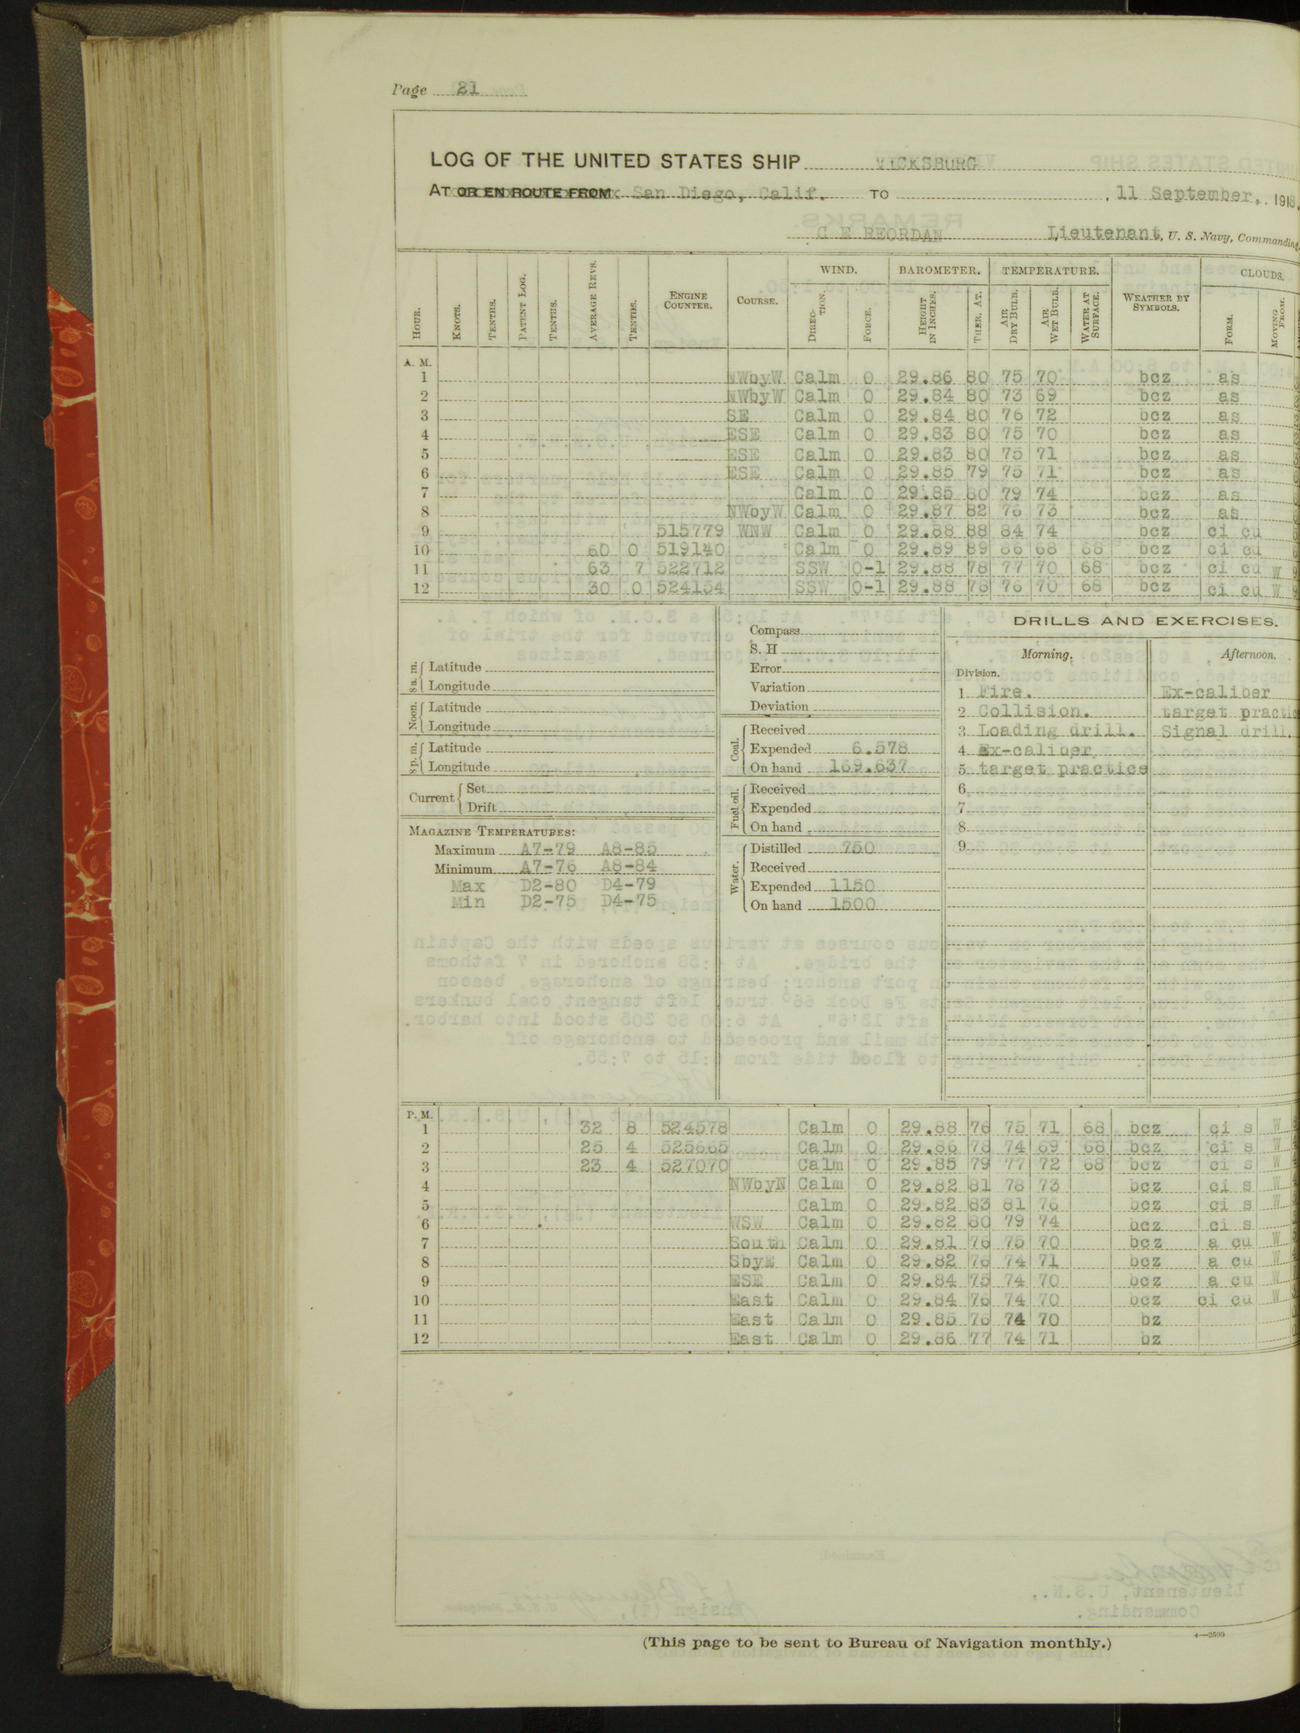 Page 21
LOG OF THE UNITED STATES SHIP VICKSBURG
AT OR EN ROUTE FROM San Diego, Calif. TO , 11 September, 1918.
C E REORDAN Lieutenant, U. S. Navy, Commanding
HOUR. KNOTS. TENTHS. PATENT LOG. TENTHS. AVERAGE REVS. TENTHS. ENGINE COUNTER. COURSE. WIND. DIRECTION. FORCE. BAROMETER. HEIGHT IN INCHES. THER. AT. TEMPERATURE. AIR DRY BULB. AIR WET BULB. WATER AT SURFACE. WEATHER BY SYMBOLS. CLOUDS. FORM. MOVING FROM.
A. M.
1 NWbyW Calm 0 29.86 80 75 70 bcz as
2 NWbyW Calm 0 29.84 80 73 69 bcz as
3 SE Calm 0 29.84 80 76 72 bcz as
4 ESE Calm 0 29.83 80 75 70 bcz as
5 ESE Calm 0 29.83 80 75 71 bcz as
6 ESE Calm 0 29.85 79 75 71 bcz as
7 Calm 0 29.85 80 79 74 bcz as
8 NWbyW Calm 0 29.87 82 76 73 bcz as
9 515779 WNW Calm 0 29.88 88 84 74 bcz ci cu
10 60 0 519140 Calm 0 29.89 89 86 68 68 bcz ci cu
11 63 7 522712 SSW 0-1 29.88 78 77 70 68 bcz ci cu W
12 30 0 524154 SSW 0-1 29.88 78 76 70 68 bcz ci cu W
8 a. m. Latitude
Longitude
Noon. Latitude
Longitude
8 p. m. Latitude
Longitude
Current Set
Drift
MAGAZINE TEMPERATURES:
Maximum A7-79 A8-85
Minimum A7-76 A8-84
Max D2-80 D4-79
Min D2-75 D4-75
Compass
S. H
Error
Variation
Deviation
Coal. Received
Expended 6.578
On hand 169.637
Fuel oil. Received
Expended
On hand
Water. Distilled 750
Received
Expended 1150
On hand 1500
DRILLS AND EXERCISES.
Morning. Afternoon.
Division.
1 Fire. Ex-caliber
2 Collision. target practice
3 Loading drill. Signal drill.
4 Ex-caliber
5 target practice
6
7
8
9
P. M.
1 32 8 524578 Calm 0 29.88 76 75 71 68 bcz ci s W
2 25 4 525665 Calm 0 29.86 78 74 69 68 bcz ci s W
3 23 4 527070 Calm 0 29.85 79 77 72 68 bcz ci s W
4 NWbyN Calm 0 29.82 81 78 73 bcz ci s W
5 Calm 0 29.82 83 81 76 bcz ci s W
6 WSW Calm 0 29.82 80 79 74 bcz ci s W
7 South Calm 0 29.81 76 75 70 bcz a cu W
8 SbyE Calm 0 29.82 76 74 71 bcz a cu W
9 ESE Calm 0 29.84 75 74 70 bcz a cu W
10 East Calm 0 29.84 76 74 70 bcz ci cu W
11 East Calm 0 29.85 76 74 70 bz
12 East Calm 0 29.86 77 74 71 bz
(This page to be sent to Bureau of Navigation monthly.)
4—2599